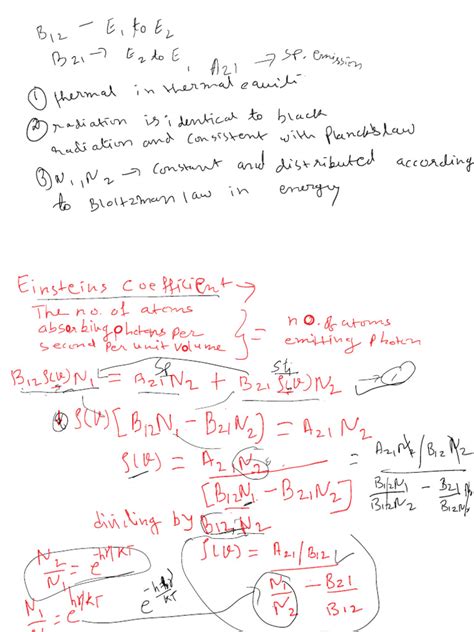 B₁₂ — E₁ to E₂
B₂₁ → E₂ to E₁, A₂₁ → sp. emission
① thermal in thermal equili
② radiation is identical to black
radiation and consistent with Planck's law
③ N₁, N₂ → constant and distributed according
to Bloltzman law in energy
Einsteins coefficient →
The no. of atoms
absorbing photons per
second per unit volume } = no. of atoms
emitting photon
B₁₂ ρ(ν) N₁ = A₂₁ N₂ + B₂₁ ρ(ν) N₂ → ①
sp sti
ρ(ν) [B₁₂N₁ − B₂₁N₂] = A₂₁ N₂
ρ(ν) = A₂₁ N₂ / [B₁₂N₁ − B₂₁N₂] = A₂₁ N₂ / B₁₂ N₂ / B₁₂N₁ / B₁₂N₂ − B₂₁ N₂ / B₁₂ N₂
dividing by B₁₂ N₂
N₂/N₁ = e^-hν/kT
ρ(ν) = A₂₁/B₁₂ / N₁/N₂ − B₂₁/B₁₂
N₁/N₂ = e^hν/kT